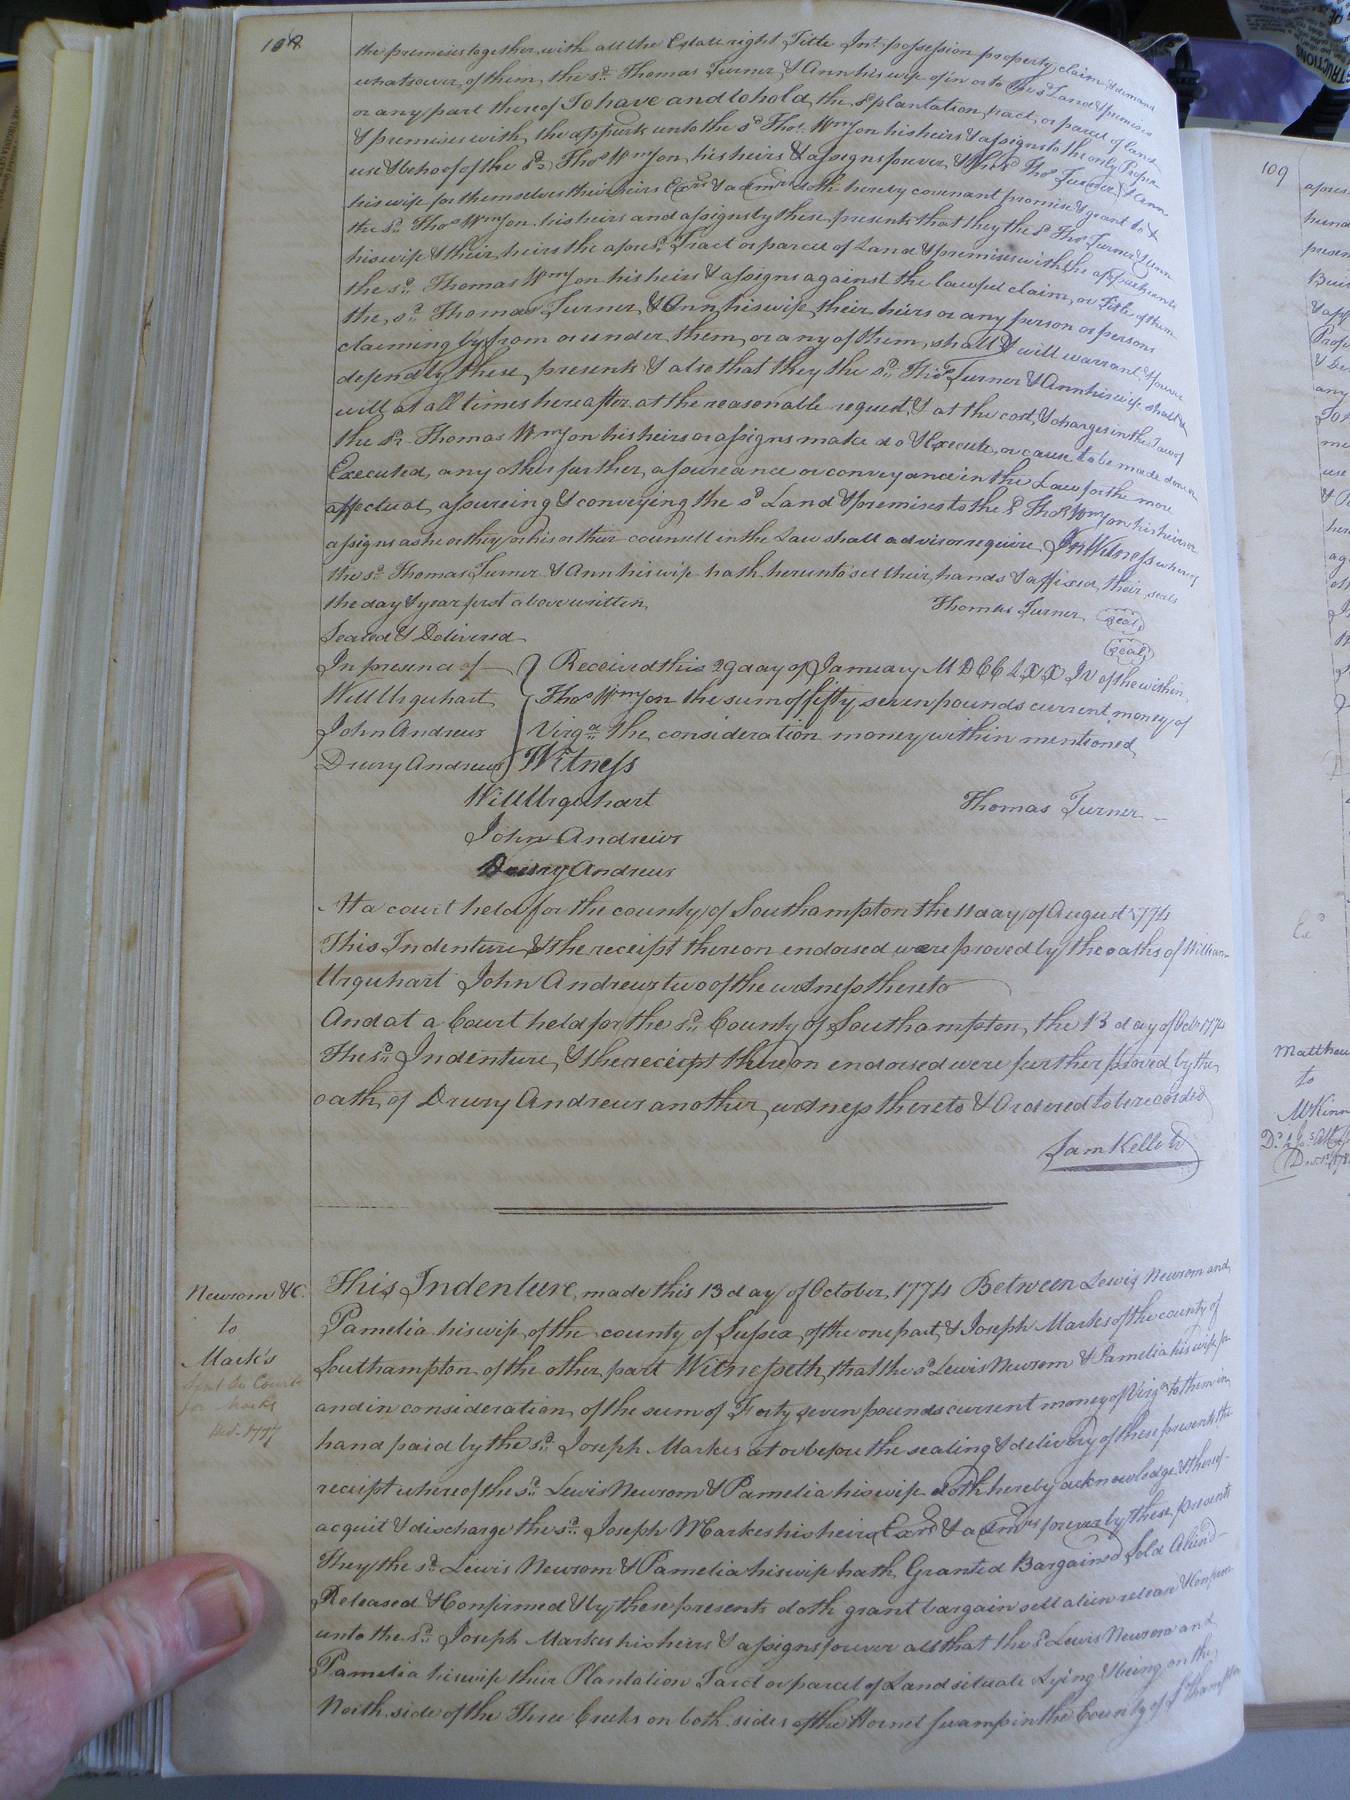 108
the premises together with all the Estate right Title Int. possession property claim & demand
whatsoever of them the sd. Thomas Turner & Ann his wife of in or to the sd Land & premises
or any part thereof To have and to hold the sd plantation tract or parcel of land
& premises with the appurts unto the sd Thos. Wmson his heirs & assigns to the only Proper
use & behoof of the sd. Thos Wmson his heirs & assigns forever & the sd Thos Turner & Ann
his wife for themselves their heirs Exrs & admrs doth hereby covenant promise & grant to &
the sd. Thos Wmson his heirs and assigns by these presents that they the sd Thos Turner & Ann
his wife & their heirs the afores.d Tract or parcel of Land & premises with the appurtenants
the sd. Thomas Wmson his heirs & assigns against the lawful claim or Title of them
the sd. Thomas Turner & Ann his wife their heirs or any person or persons
claiming by from or under them or any of them shall & will warrant & forever
defend by these presents & also that they the sd. Thos Turner & Ann his wife shall &
will at all times hereafter at the reasonable request & at the cost & charges in the Law of
the sd. Thomas Wmson his heirs or assigns make do & Execute or cause to be made done or
Executed any other further assureance or conveyance in the Law for the more
affectual assureing & conveying the sd Land & premises to the sd Thos Wmson his heirs or
assigns as he or they or his or their counsell in the Law shall advis or require In Witness whereof
the sd. Thomas Turner & Ann his wife hath hereunto set their hands & affixed their seals
the day & year first above written
Thomas Turner (seal)
Sealed & Delivered
(seal)
In presence of
Will Urquhart
John Andrews
Drury Andrews
Received this 29 day of January MDCCLXXIV of the within
Thos Wmson the sum of fifty seven pounds current money of
Virga. the consideration money within mentioned
Witness
Will Urquhart
Thomas Turner
John Andrews
Drury Andrews
At a court held for the county of Southampton the 11 day of August 1774
This Indenture & the receipt thereon endorsed were proved by the oaths of William
Urquhart John Andrews two of the witness thereto
And at a Court held for the sd. County of Southampton the 13 day of Octr 1774
The sd. Indenture & the receipt thereon endorsed were further proved by the
oath of Drury Andrews another witness thereto & Ordered to be recorded
Sam Kello
Newsom &C.
to
Mark's
for Marks
1777
This Indenture made this 13 day of October 1774 Between Lewis Newsom and
Pamelia his wife of the county of Sussex of the one part & Joseph Marks of the county of
Southampton of the other part Witnesseth that the sd Lewis Newsom & Pamelia his wife for
and in consideration of the sum of Forty seven pounds current money of Virga to them in
hand paid by the sd. Joseph Markes at or before the sealing & delivery of these presents the
receipt whereof the sd. Lewis Newsom & Pamelia his wife doth hereby acknowledge & thereof
acquit & discharge the sd. Joseph Markes his heirs Exrs & admrs forever by these presents
They the sd Lewis Newsom & Pamelia his wife hath Granted Bargained Sold Aliend
Released & Confirmed & by these presents doth grant bargain sell alien release & Confirm
unto the sd. Joseph Markes his heirs & assigns forever all that the sd Lewis Newsom and
Pamelia his wife their Plantation Tract or parcel of Land situate Lying & being on the
North side of the Three Creeks on both sides of the Hornet swamp in the County of Sthampton
109
Matthew
to
McKinn